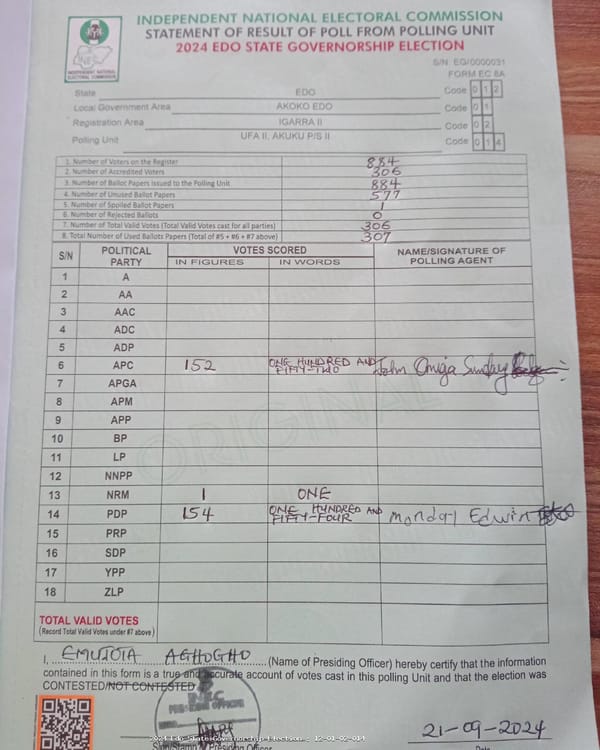 INDEPENDENT NATIONAL ELECTORAL COMMISSION
STATEMENT OF RESULT OF POLL FROM POLLING UNIT
2024 EDO STATE GOVERNORSHIP ELECTION
INEC
INDEPENDENT NATIONAL ELECTORAL COMMISSION
S/N EG/0000031
FORM EC 8A
State EDO Code 0 1 2
Local Government Area AKOKO EDO Code 0 1
Registration Area IGARRA II Code 0 2
Polling Unit UFA II, AKUKU P/S II Code 0 1 4
1. Number of Voters on the Register 884
2. Number of Accredited Voters 306
3. Number of Ballot Papers Issued to the Polling Unit 884
4. Number of Unused Ballot Papers 577
5. Number of Spoiled Ballot Papers 1
6. Number of Rejected Ballots 0
7. Number of Total Valid Votes (Total Valid Votes cast for all parties) 306
8. Total Number of Used Ballots Papers (Total of #5 + #6 + #7 above) 307
S/N POLITICAL PARTY VOTES SCORED NAME/SIGNATURE OF POLLING AGENT
IN FIGURES IN WORDS
1 A
2 AA
3 AAC
4 ADC
5 ADP
6 APC 152 ONE HUNDRED AND FIFTY-TWO John Omiga Sunday
7 APGA
8 APM
9 APP
10 BP
11 LP
12 NNPP
13 NRM 1 ONE
14 PDP 154 ONE HUNDRED AND FIFTY-FOUR Monday Edwin
15 PRP
16 SDP
17 YPP
18 ZLP
ORIGINAL
TOTAL VALID VOTES
(Record Total Valid Votes under #7 above)
I, EMUJOTA AGHOGHO (Name of Presiding Officer) hereby certify that the information
contained in this form is a true and accurate account of votes cast in this polling Unit and that the election was
CONTESTED/NOT CONTESTED
INEC
PRESIDING OFFICER
2024 Edo State Governorship Election - 12-01-02-014
21-09-2024
Sign/Stamp of Presiding Officer Date